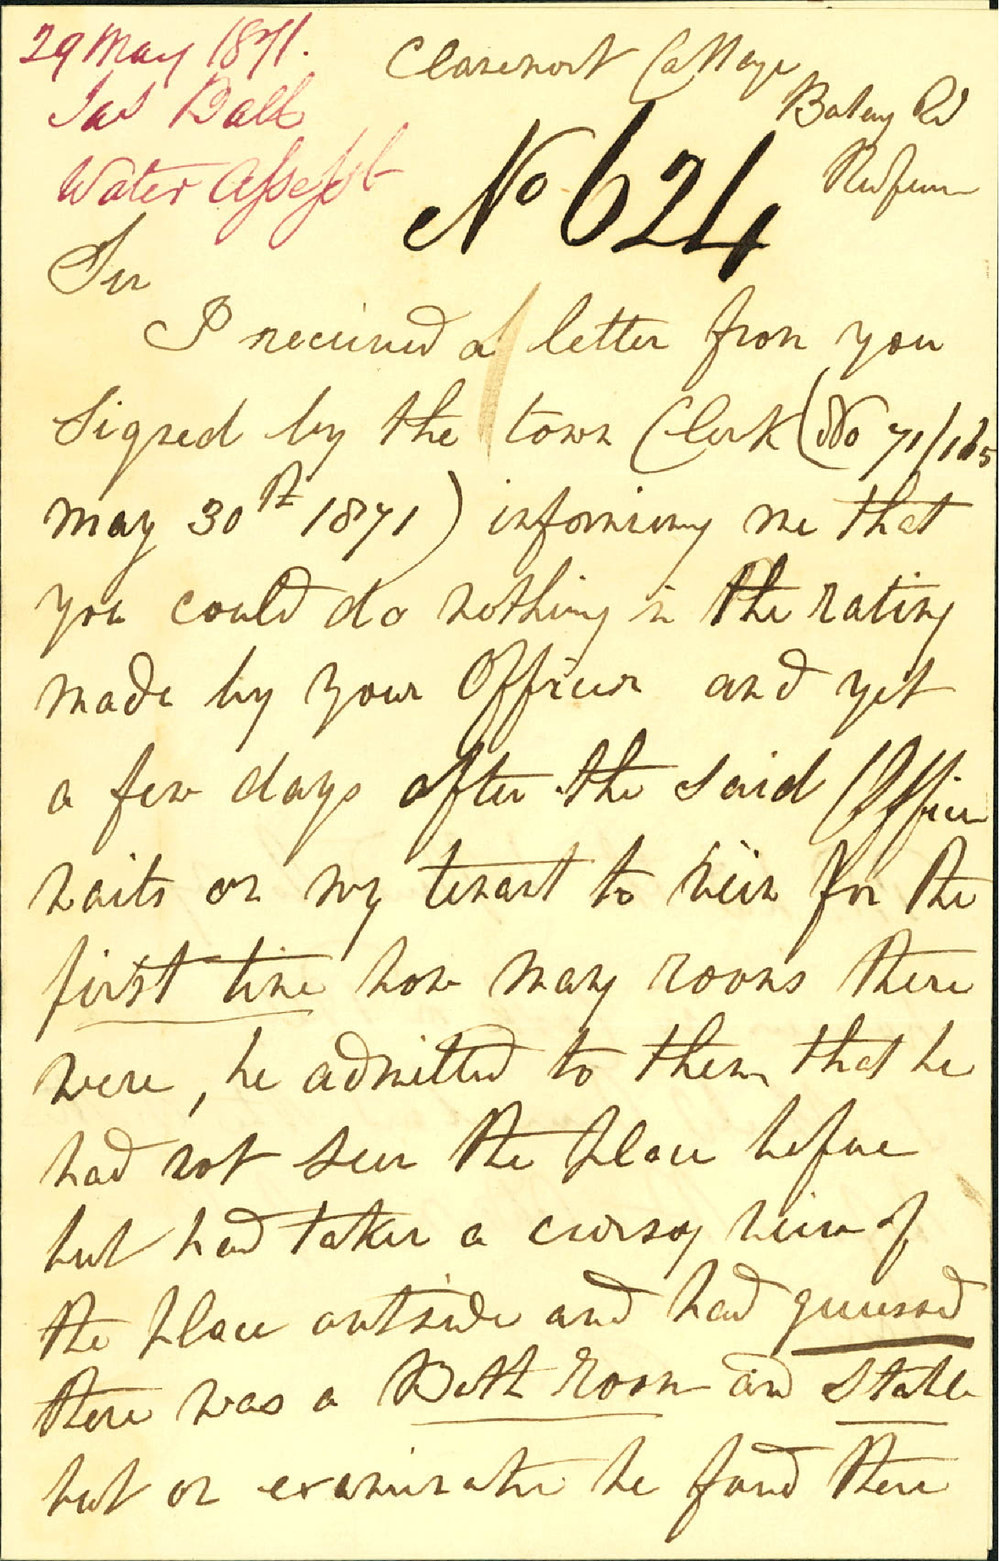 29 May 1871.
Jas Ball
Water Assesst
Claremont Cottage
Botany Rd
Redfern
No 624
Sir
I received a letter from you
signed by the town Clerk (No 71/165
May 30th 1871) informing me that
you could do nothing in the rating
made by your Officer and yet
a few days after the said Officer
waits on my tenant to view for the
first time how many rooms there
were, he admitted to them that he
had not seen the place before
but had taken a cursory view of
the place outside and had guessed
there was a Bath room and Stable
but on examination he found there